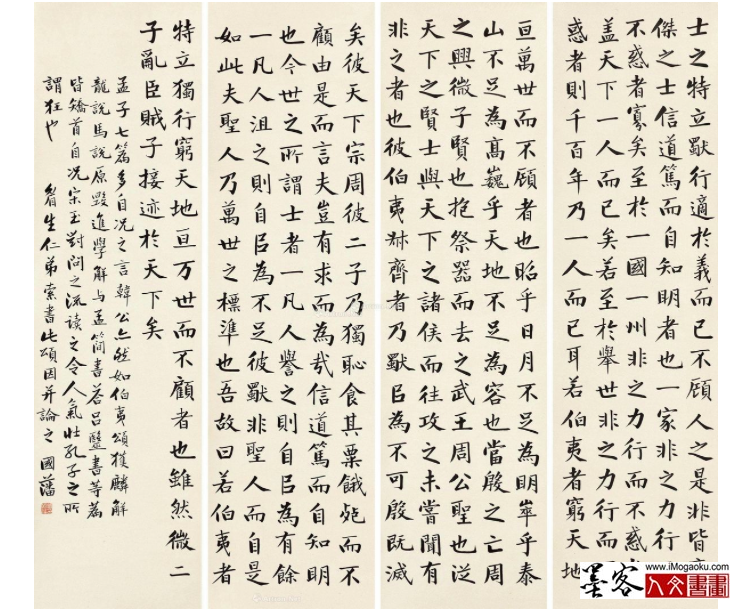 士之特立獨行適於義而已不顧人之是非皆
傑之士信道篤而自知明者也一家非之力行
不惑者寡矣至於一國一州非之力行而不惑
盖天下一人而已矣若至於舉世非之力行而
惑者則千百年乃一人而已耳若伯夷者窮天地
亘萬世而不顧者也昭乎日月不足為明崒乎泰
山不足為高巍乎天地不足為容也當殷之亡周
之興微子賢也抱祭器而去之武王周公聖也從
天下之賢士與天下之諸侯而往攻之未嘗聞有
非之者也彼伯夷叔齊者乃獨以為不可殷既滅
矣彼天下宗周彼二子乃獨恥食其粟餓死而不
顧由是而言夫豈有求而為哉信道篤而自知明
也今世之所謂士者一凡人譽之則自以為有餘
一凡人沮之則自以為不足彼獨非聖人而自是
如此夫聖人乃萬世之標準也吾故曰若伯夷者
特立獨行窮天地亘万世而不顧者也雖然微二
子亂臣賊子接迹於天下矣
孟子七篇多自况之言韓公亦然如伯夷頌獲麟解
龍說馬說原毀進學解与孟簡書荅呂毉書等篇
皆矯首自况宋玉對問之流读之令人氣壮孔子之所
謂狂也 眉生仁弟索書此頌因并論之 國藩
www.iMogaoku.com
墨客 人文書畫